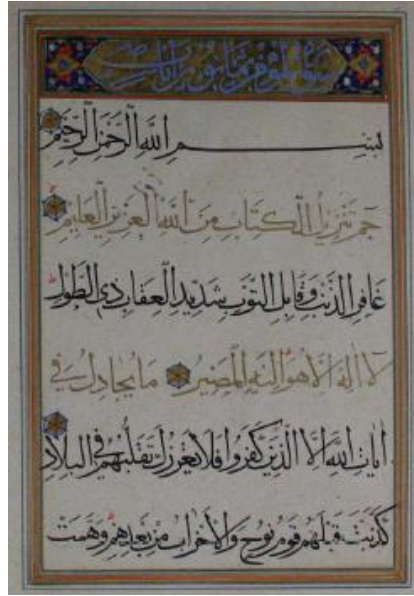 سورة المؤمن
بسم الله الرحمن الرحيم
حم تنزيل الكتاب من الله العزيز العليم
غافر الذنب وقابل التوب شديد العقاب ذي الطول
لا اله الا هو اليه المصير ما يجادل في
ايات الله الا الذين كفروا فلا يغررك تقلبهم في البلاد
كذبت قبلهم قوم نوح والاحزاب من بعدهم وهمت